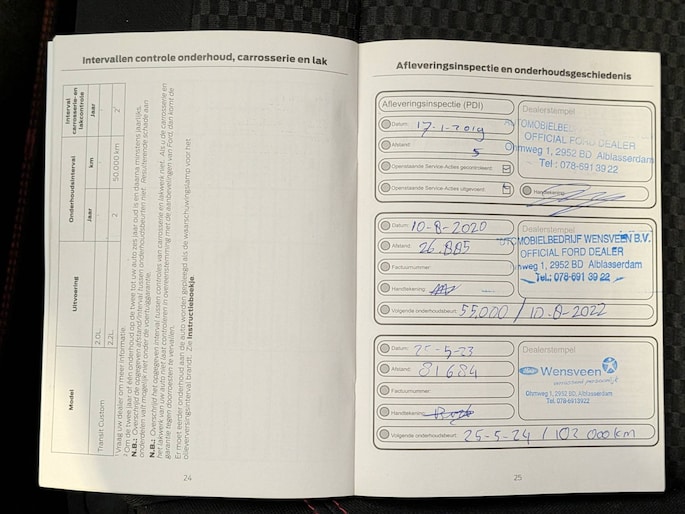 Intervallen controle onderhoud, carrosserie en lak
Model
Uitvoering
Onderhoudsinterval
Interval carrosserie-en lakcontrole
Jaar
km
Jaar
Transit Custom
2.0L
2.2L
2
50.000 km
2
Vraag uw dealer om meer informatie.
Om de twee jaar of één onderhoud op de twee tot uw auto zes jaar oud is en daarna minstens jaarlijks.
N.B.: Overschrijd de opgegeven afstand/interval tussen onderhoudsbeurten niet. Resulterende schade aan
onderdelen valt mogelijk niet onder de voertuiggarantie.
N.B.: Overschrijd het opgegeven interval tussen controles van carrosserie en lakwerk niet. Als u de carrosserie en
het lakwerk van uw auto niet laat controleren in overeenstemming met de aanbevelingen van Ford, dan komt de
garantie tegen doorroesten te vervallen.
Er moet eerder onderhoud aan de auto worden gepleegd als de waarschuwingslamp voor het
olieverversingsinterval brandt. Zie Instructieboekje.
24
Afleveringsinspectie en onderhoudsgeschiedenis
Afleveringsinspectie (PDI)
Datum: 17-1-2019
Afstand: 5
Openstaande Service-Acties gecontroleerd:
Openstaande Service-Acties uitgevoerd:
Dealerstempel
OFFICIAL FORD DEALER
Ohmweg 1, 2952 BD Alblasserdam
Tel : 078-691 39 22
Handtekening:
Datum: 10-8-2020
Afstand: 26.885
Factuurnummer:
Handtekening:
Volgende onderhoudsbeurt: 55,000 / 10-8-2022
Dealerstempel
AUTOMOBIELBEDRIJF WENSVEEN B.V.
OFFICIAL FORD DEALER
Ohmweg 1, 2952 BD Alblasserdam
Tel.: 078-691 39 22
Datum: 25-5-23
Afstand: 81684
Factuurnummer:
Handtekening:
Volgende onderhoudsbeurt: 25-5-24 / 102 000 km
Dealerstempel
Wensveen
verrassend persoonlijk
Ohmweg 1, 2952 BD, Alblasserdam
Tel. 078-6913922
25